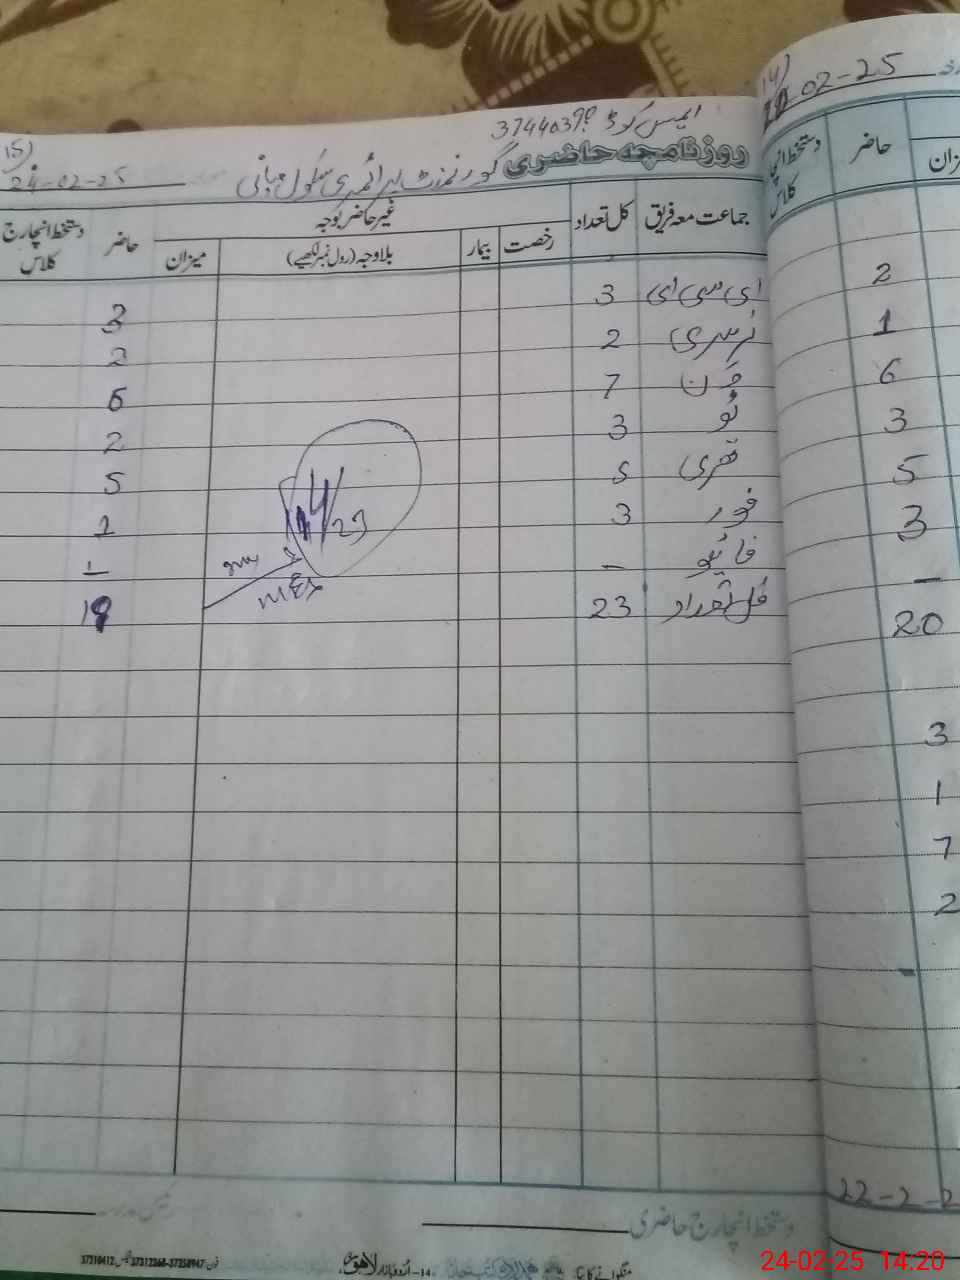 ایمس کوڈ
روزنامچہ حاضری گورنمنٹ پرائمری سکول
15)
24-02-25
جماعت معہ فریق کل تعداد غیر حاضر بوجہ حاضر دستخط انچارج کلاس
رخصت بیمار بلاوجہ (رول نمبر لکھیے) میزان
ای سی ای 3 3
نرسری 2 2
ون 7 6
ٹو 3 2
تھری 5 5
فور 3 1
فائیو – –
کل تعداد 23
14/23
14)
02-25
دستخط انچارج کلاس حاضر
2
1
6
3
5
3
–
20
3
1
7
2
-
22-2-2
دستخط انچارج حاضری رئیس مدرسہ
منگوانے کا پتہ
14-اُردو بازار لاہور
فون: 37358947-37312268 37310412
24-02-25 14:20